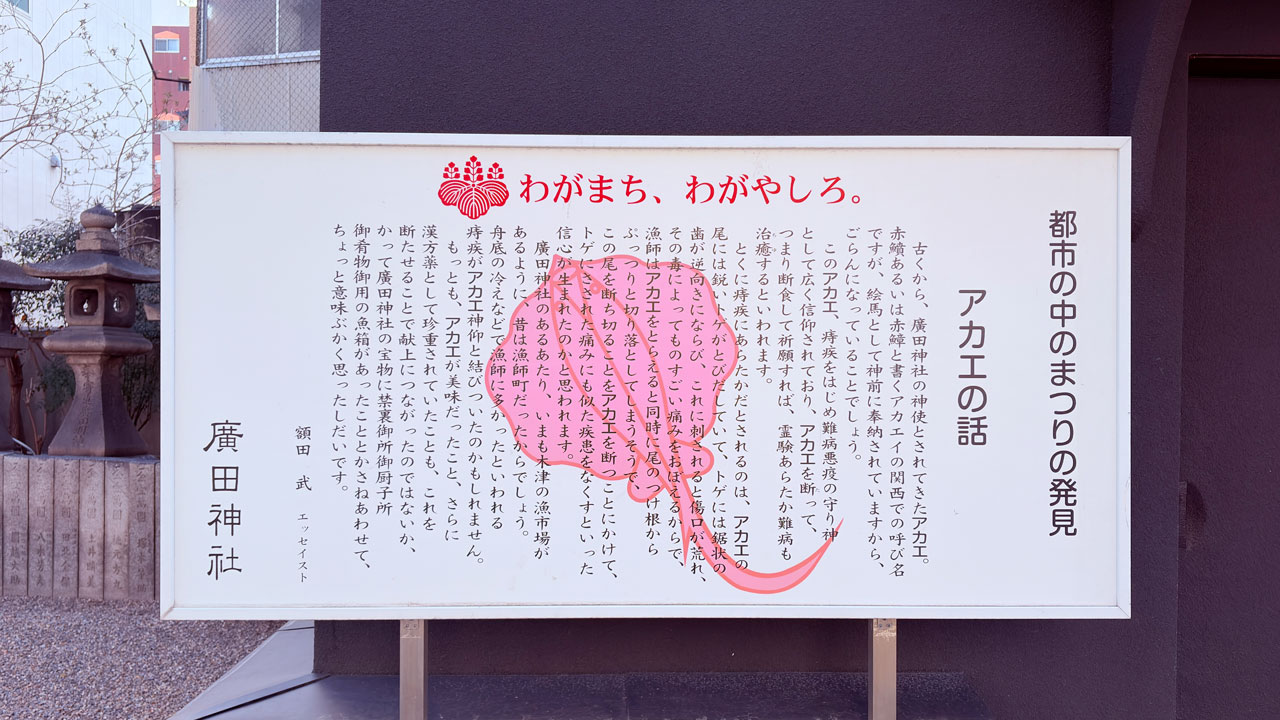 わがまち、わがやしろ。
都市の中のまつりの発見
アカエの話
古くから、廣田神社の神使とされてきたアカエ。
赤鱝あるいは赤鱆と書くアカエイの関西での呼び名
ですが、絵馬として神前に奉納されていますから、
ごらんになっていることでしょう。
このアカエ、痔疾をはじめ難病悪疫の守り神
として広く信仰されており、アカエを断って、
つまり断食して祈願すれば、霊験あらたか難病も
治癒するといわれます。
とくに痔疾にあらたかだとされるのは、アカエの
尾には鋭いトゲがとびだしていて、トゲには鋸状の
歯が逆向きにならび、これに刺されると傷口が荒れ、
その毒によってものすごい痛みをおぼえるからで、
漁師はアカエをとらえると同時に尾のつけ根から
ぶっつりと切り落としてしまうそうで、
この尾を断ち切ることをアカエを断つことにかけて、
トゲにさされた痛みにも似た疾患をなくすといった
信心が生まれたのかと思われます。
廣田神社のあるあたり、いまも木津の漁市場が
あるように、昔は漁師町だったからでしょう。
舟底の冷えなどで漁師に多かったといわれる
痔疾がアカエ神仰と結びついたのかもしれません。
もっとも、アカエが美味だったこと、さらに
漢方薬として珍重されていたことも、これを
断たせることで献上につながったのではないか、
かって廣田神社の宝物に禁裏御所御厨子所
御肴所御用の魚箱があったこととかさねあわせて、
ちょっと意味ぶかく思ったしだいです。
額田 武 エッセイスト
廣田神社